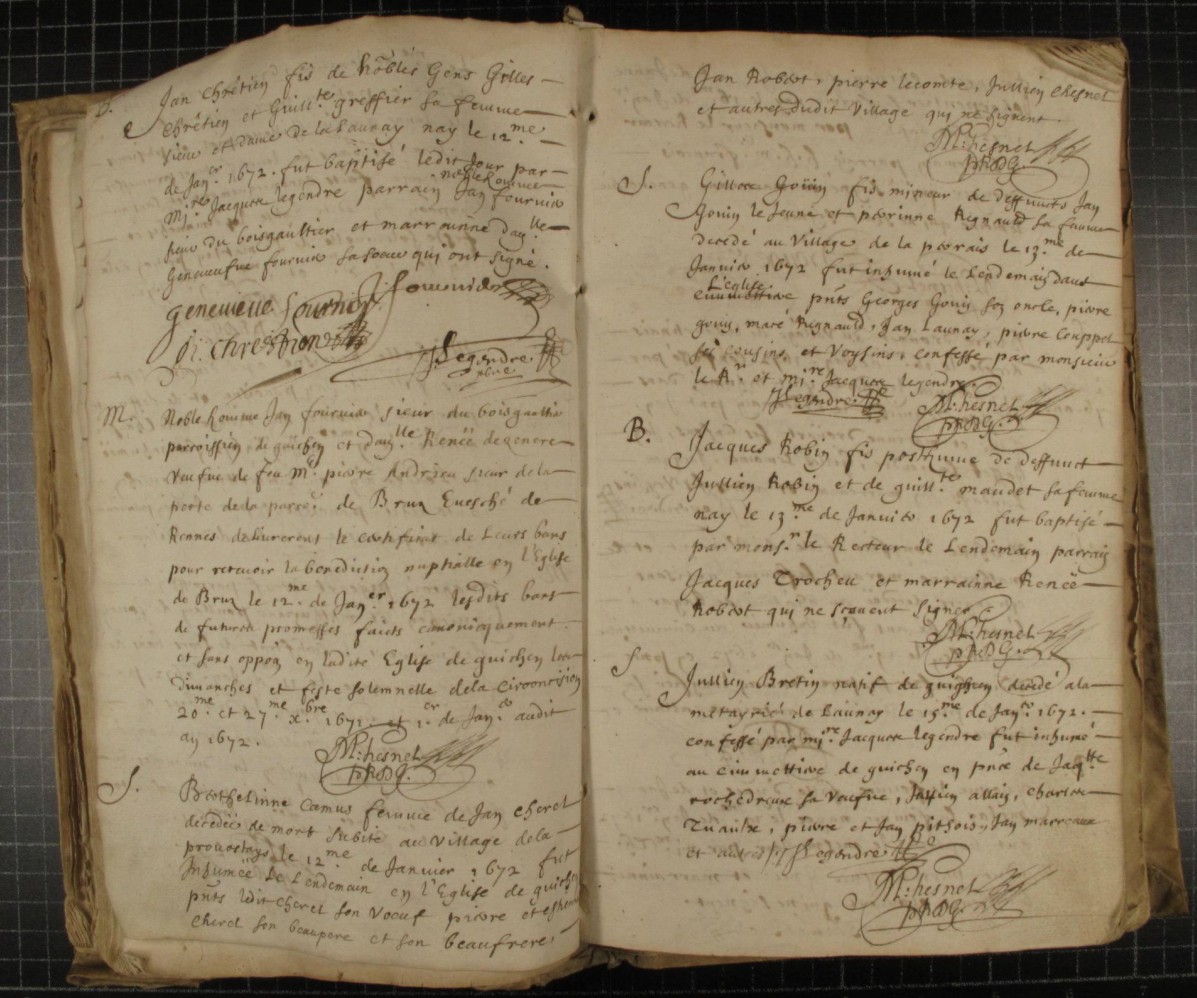 B.
Jan Chrétien fis de Nobles Gens Gilles
Chrétien et Guill.te greffier sa femme
sieur et dame de la Launay nay le 12.me
de Jan.er 1672. fut baptisé ledit Jour par
noble homme
mi.re Jacques legendre parrain Jan fournier
sieur du boisgaultier et marrainne Da.lle
Geneuiefue fournier sa soeur qui ont signé.
geneuieue fournier J fournier
Gi: chrestien
J Legendre
pbre
M.
Noble homme Jan fournier sieur du boisgaultier
parroissien de guichen et da.lle Renée
Veufue de feu M.e pierre Andrieu sieur de la
porte de la parr.e de Bruz Euesché de
Rennes deliureront le certificat de Leurs bans
pour receuoir la benediction nuptialle en l'Eglise
de Bruz le 12.me de Jan.er 1672 lesdits bans
de futures promesses faicts canonicquement
et sans oppo͞n en ladite Eglise de guichen les
dimanches et feste solemnelle dela circoncision
20.me et 27.me x.bre 1671 et 1.er de Jan.er audit
an 1672.
M: hesnel
pRDG.
S.
Berthelinne Camus femme de Jan cherel
décédée de mort subite au Village dela
prouostays le 12.me de Janvier 1672 fut
Inhumée Le Lendemain en l'Eglise de guichen
pn̄ts ledit cherel son Voeuf pierre et
cherel son beaupere et son beaufrere,
Jan Robert, pierre lecomte, Jullien Chesnel
et autres dudit Village qui ne signent.
M: hesnel
pRDG.
S.
Gillette Goüin fis mineur de deffuncts Jan
Gouin le Jeune et perrinne Regnauld sa femme
decedé au Village de la perrais le 13.me de
Januier 1672 fut inhumé le Lendemain dans
L'eglise
cimmettiere pn̄ts Georges Gouin son oncle, pierre
gouin, Macé Regnauld, Jan Launay, pierre Couppel
ses cousins et Voysins, confessé par monsieur
le R.r et mi.re Jacques legendre.
J Legendre M: hesnel
pRDG.
B.
Jacques Robin fis posthume de deffunct
Jullien Robin et de guill.te maudet sa femme
nay le 13.me de Januier 1672 fut baptisé
par mons.r le Recteur le Lendemain parrain
Jacques Trocheu et marrainne Renée
Robert qui ne sçauent signer
M: hesnel
pRDG.
S.
Jullien Bretin natif de guighen decedé ala
metayrie de Launay le 15.me de Jan.er 1672.
confessé par mi.re Jacques legendre fut inhumé
au cimmettiere de guichen en pn̄ce de Jaq.tte
sa Veufue, Jullien allain, Charles
Tuaulx, pierre et Jan pithois, Jan marreaux
et autres J Legendre
M: hesnel
pRDG.